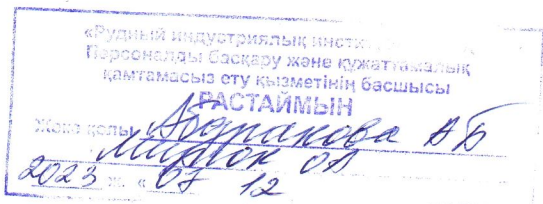 «Рудный индустриялық
Персоналды басқару және құжаттамалық
қамтамасыз ету қызметінің басшысы
РАСТАЙМЫН
Жеке қолы Абдракова АБ
2023 ж. « 07 12